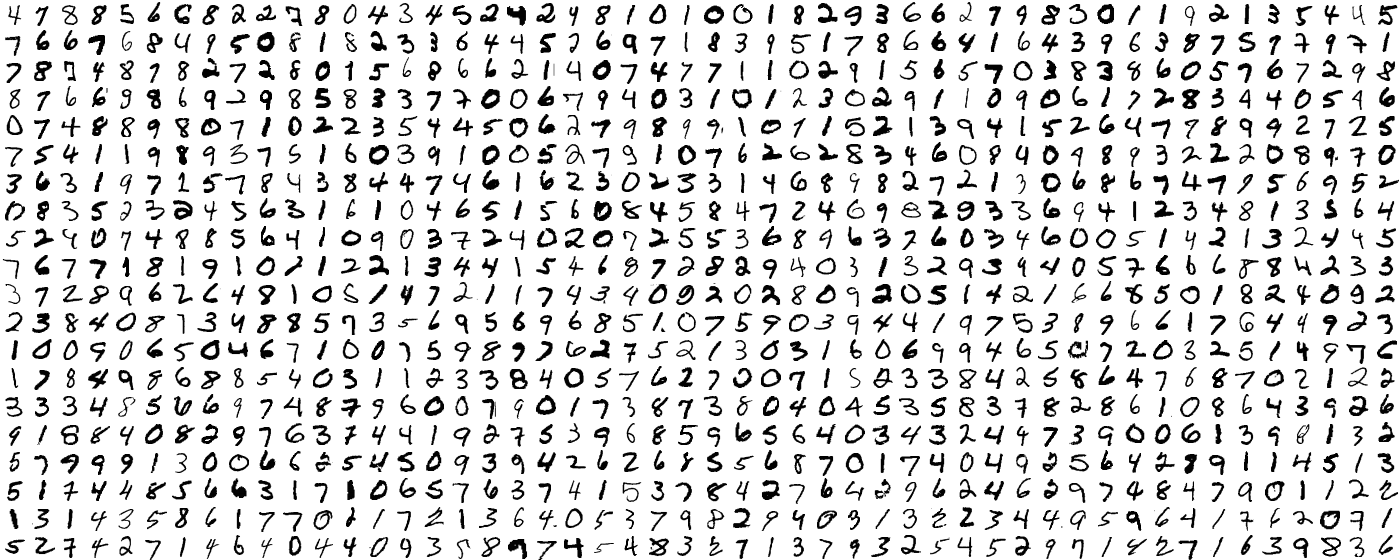 4 7 8 8 5 6 6 8 2 2 7 8 0 4 3 4 5 2 4 2 9 8 1 0 1 0 0 1 8 2 9 3 6 6 2 7 9 8 3 0 1 1 9 2 1 3 5 4 4 5
7 6 6 7 6 8 4 9 5 0 8 1 8 2 3 3 6 4 4 5 2 6 9 7 1 8 3 9 5 1 7 8 6 6 4 1 6 4 3 9 6 3 8 7 5 9 7 9 7 1
7 8 7 4 8 7 8 2 7 2 8 0 1 5 6 8 6 6 2 1 4 0 7 4 7 7 1 1 0 2 9 1 5 6 5 7 0 3 8 3 8 6 0 5 7 6 7 2 9 8
8 7 6 6 9 8 6 9 2 9 8 5 8 3 3 7 7 0 0 6 7 9 4 0 3 1 0 1 2 3 0 2 9 1 1 0 9 0 6 1 7 2 8 3 4 4 0 5 4 6
0 7 4 8 8 9 8 0 7 1 0 2 2 3 5 4 4 5 0 6 2 7 9 8 9 9 1 0 7 1 5 2 1 3 9 4 1 5 2 6 4 7 7 8 9 9 2 7 2 5
7 5 4 1 1 9 8 9 3 7 5 1 6 0 3 9 1 0 0 5 2 7 9 1 0 7 6 2 6 2 8 3 4 6 0 8 4 0 9 8 9 3 2 2 2 0 8 9 7 0
3 6 3 1 9 7 1 5 7 8 4 3 8 4 4 7 4 6 1 6 2 3 0 2 3 3 1 4 6 8 9 8 2 7 2 1 3 0 6 8 6 7 4 7 9 5 6 9 5 2
0 8 3 5 2 3 2 4 5 6 3 1 6 1 0 4 6 5 1 5 6 0 8 4 5 8 4 7 2 4 6 9 8 2 9 3 3 6 9 4 1 2 3 4 8 1 3 5 6 4
5 2 4 0 7 4 8 8 5 6 4 1 0 9 0 3 7 2 4 0 2 0 7 2 5 5 3 6 8 9 6 3 7 6 0 3 4 6 0 0 5 1 4 2 1 3 2 4 4 5
7 6 7 7 1 8 1 9 1 0 2 1 2 2 1 3 4 4 1 5 4 6 8 7 2 8 2 9 4 0 3 1 3 2 9 3 9 4 0 5 7 6 6 6 8 8 4 2 3 3
3 7 2 8 9 6 2 6 4 8 1 0 5 1 4 7 2 1 1 7 4 3 4 0 9 2 0 2 8 0 9 2 0 5 1 4 2 1 6 6 8 5 0 1 8 2 4 0 9 2
2 3 8 4 0 8 7 3 4 8 8 5 7 3 5 6 9 5 6 9 6 8 5 1 0 7 5 9 0 3 9 4 4 1 9 7 5 3 8 9 6 6 1 7 6 4 4 9 2 3
1 0 0 9 0 6 5 0 4 6 7 1 0 0 7 5 9 8 9 7 6 2 7 5 2 1 3 0 3 1 6 0 6 9 9 4 6 5 0 7 2 0 3 2 5 1 4 9 7 6
1 7 8 4 9 8 6 8 8 5 4 0 3 1 1 2 3 3 8 4 0 5 7 6 2 7 0 0 7 1 5 2 3 3 8 4 2 5 8 6 4 7 6 8 7 0 2 1 2 2
3 3 3 4 8 5 6 6 9 7 4 8 7 9 6 0 0 7 9 0 1 7 3 8 7 3 8 0 4 0 4 5 3 5 8 3 7 8 2 8 6 1 0 8 6 4 3 9 2 6
9 1 8 8 4 0 8 2 9 7 6 3 7 4 4 1 9 2 7 5 3 9 6 8 5 9 6 5 6 4 0 3 4 3 2 4 4 7 3 9 0 0 6 1 3 9 8 1 3 2
5 7 9 9 9 1 3 0 0 6 6 2 5 4 5 0 9 3 9 4 2 6 2 6 8 5 5 6 8 7 0 1 7 4 0 4 9 2 5 6 4 2 8 9 1 1 4 5 1 3
5 1 7 4 4 8 5 6 6 3 1 7 1 0 6 5 7 6 3 7 4 1 5 3 7 8 4 2 7 6 4 2 9 6 2 4 6 2 9 7 4 8 4 7 9 0 1 1 2 2
1 3 1 4 3 5 8 6 1 7 7 0 2 1 7 2 1 3 6 4 0 5 3 7 9 8 2 9 4 0 9 3 1 3 2 2 3 4 4 9 5 9 6 4 1 7 6 2 0 7 1
5 2 7 4 2 7 1 4 6 4 0 4 4 0 9 3 5 8 9 7 4 5 4 8 3 2 7 1 3 7 9 3 2 5 4 5 2 9 7 1 2 2 7 1 6 3 9 8 3 2